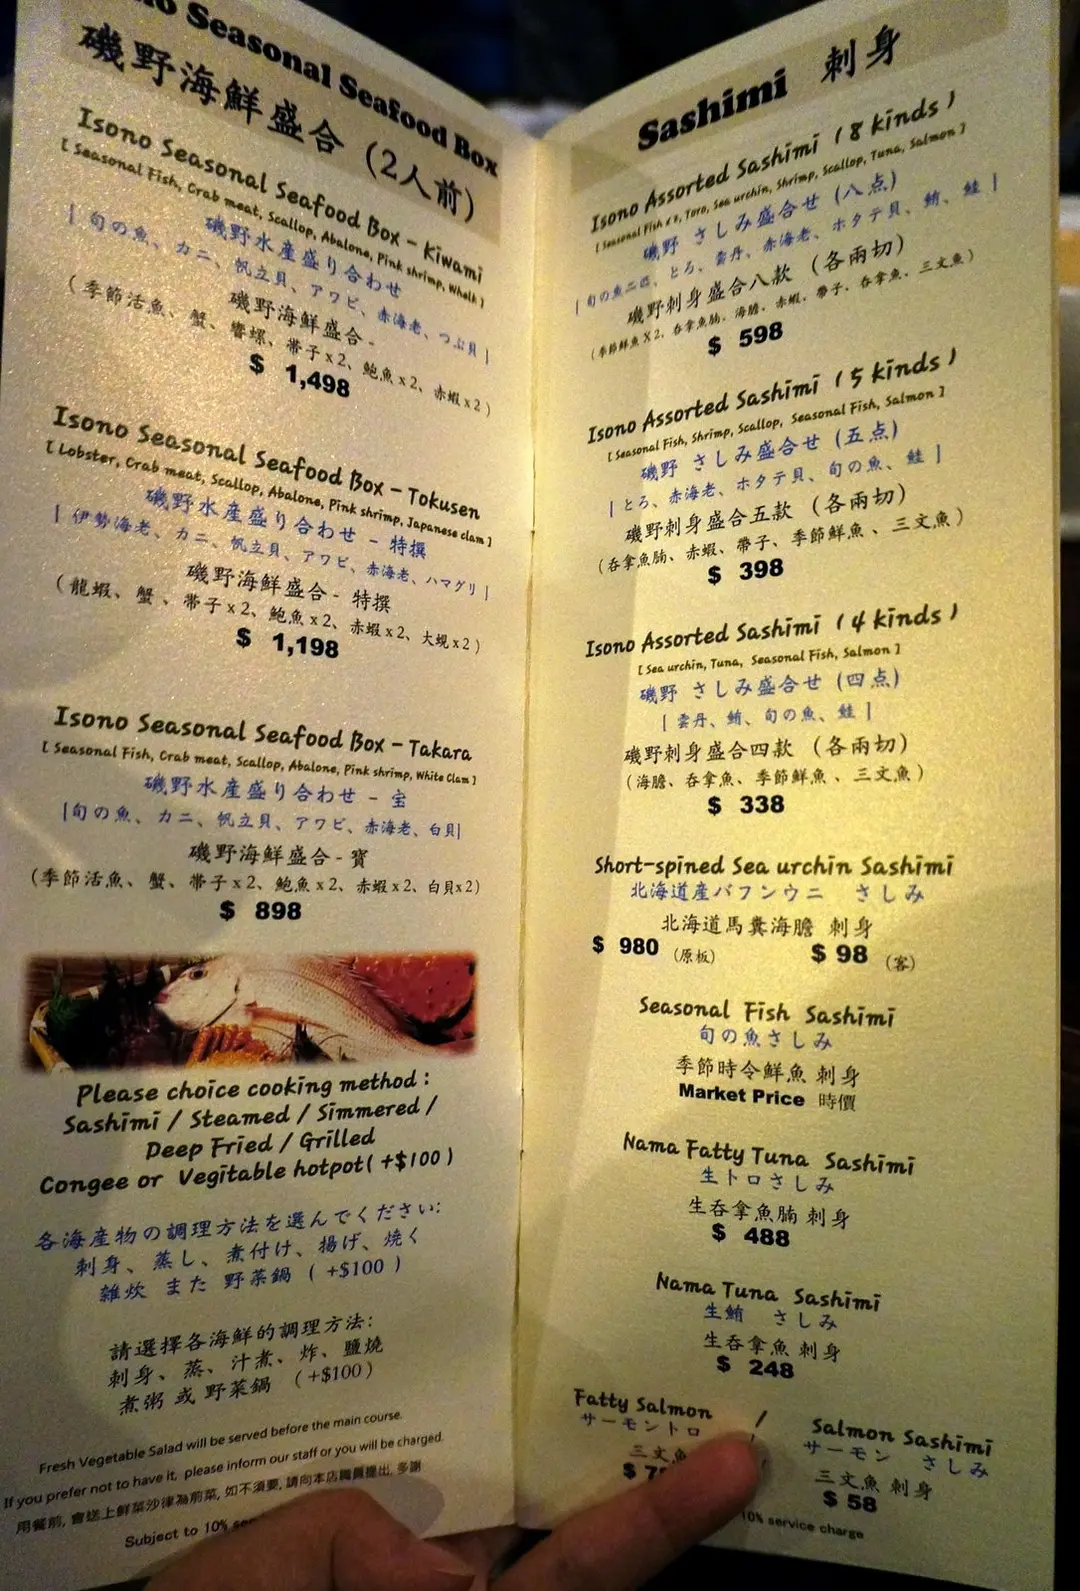 no Seasonal Seafood Box
磯野海鮮盛合 (2人前)
Isono Seasonal Seafood Box - Kiwami
[ Seasonal Fish, Crab meat, Scallop, Abalone, Pink shrimp, Whelk ]
磯野水産盛り合わせ
| 旬の魚、カニ、帆立貝、アワビ、赤海老、つぶ貝 |
磯野海鮮盛合 -
(季節活魚、蟹、響螺、帶子x2、鮑魚x2、赤蝦x2)
$ 1,498
Isono Seasonal Seafood Box - Tokusen
[ Lobster, Crab meat, Scallop, Abalone, Pink shrimp, Japanese clam ]
磯野水産盛り合わせ - 特撰
| 伊勢海老、カニ、帆立貝、アワビ、赤海老、ハマグリ |
磯野海鮮盛合 - 特撰
(龍蝦、蟹、帶子x2、鮑魚x2、赤蝦x2、大蜆x2)
$ 1,198
Isono Seasonal Seafood Box - Takara
[ Seasonal Fish, Crab meat, Scallop, Abalone, Pink shrimp, White Clam ]
磯野水産盛り合わせ - 宝
|旬の魚、カニ、帆立貝、アワビ、赤海老、白貝|
磯野海鮮盛合 - 寶
(季節活魚、蟹、帶子x2、鮑魚x2、赤蝦x2、白貝x2)
$ 898
Please choice cooking method :
Sashimi / Steamed / Simmered /
Deep Fried / Grilled
Congee or Vegitable hotpot( +$100 )
各海産物の調理方法を選んでください:
刺身、蒸し、煮付け、揚げ、焼く
雑炊 また 野菜鍋 ( +$100 )
請選擇各海鮮的調理方法:
刺身、蒸、汁煮、炸、鹽燒
煮粥 或 野菜鍋 (+$100)
Fresh Vegetable Salad will be served before the main course.
If you prefer not to have it, please inform our staff or you will be charged.
用餐前, 會送上鮮菜沙律為前菜, 如不須要, 請向本店職員提出, 多謝
Subject to 10%
Sashimi 刺身
Isono Assorted Sashimi ( 8 kinds )
[ Seasonal Fish x 2, Toro, Sea urchin, Shrimp, Scallop, Tuna, Salmon ]
磯野 さしみ盛合せ (八点)
| 旬の魚二匹、とろ、雲丹、赤海老、ホタテ貝、鮪、鮭 |
磯野刺身盛合八款 (各兩切)
(季節鮮魚X2、吞拿魚腩、海膽、赤蝦、帶子、吞拿魚、三文魚)
$ 598
Isono Assorted Sashimi ( 5 kinds )
[ Seasonal Fish, Shrimp, Scallop, Seasonal Fish, Salmon ]
磯野 さしみ盛合せ (五点)
| とろ、赤海老、ホタテ貝、旬の魚、鮭 |
磯野刺身盛合五款 (各兩切)
(吞拿魚腩、赤蝦、帶子、季節鮮魚、三文魚)
$ 398
Isono Assorted Sashimi ( 4 kinds )
[ Sea urchin, Tuna, Seasonal Fish, Salmon ]
磯野 さしみ盛合せ (四点)
| 雲丹、鮪、旬の魚、鮭 |
磯野刺身盛合四款 (各兩切)
(海膽、吞拿魚、季節鮮魚、三文魚)
$ 338
Short-spined Sea urchin Sashimi
北海道産バフンウニ さしみ
北海道馬糞海膽 刺身
$ 980 (原板) $ 98 (客)
Seasonal Fish Sashimi
旬の魚さしみ
季節時令鮮魚 刺身
Market Price 時價
Nama Fatty Tuna Sashimi
生トロさしみ
生吞拿魚腩 刺身
$ 488
Nama Tuna Sashimi
生鮪 さしみ
生吞拿魚 刺身
$ 248
Fatty Salmon /
サーモントロ
三文魚
Salmon Sashimi
サーモン さしみ
三文魚 刺身
$ 58
10% service charge